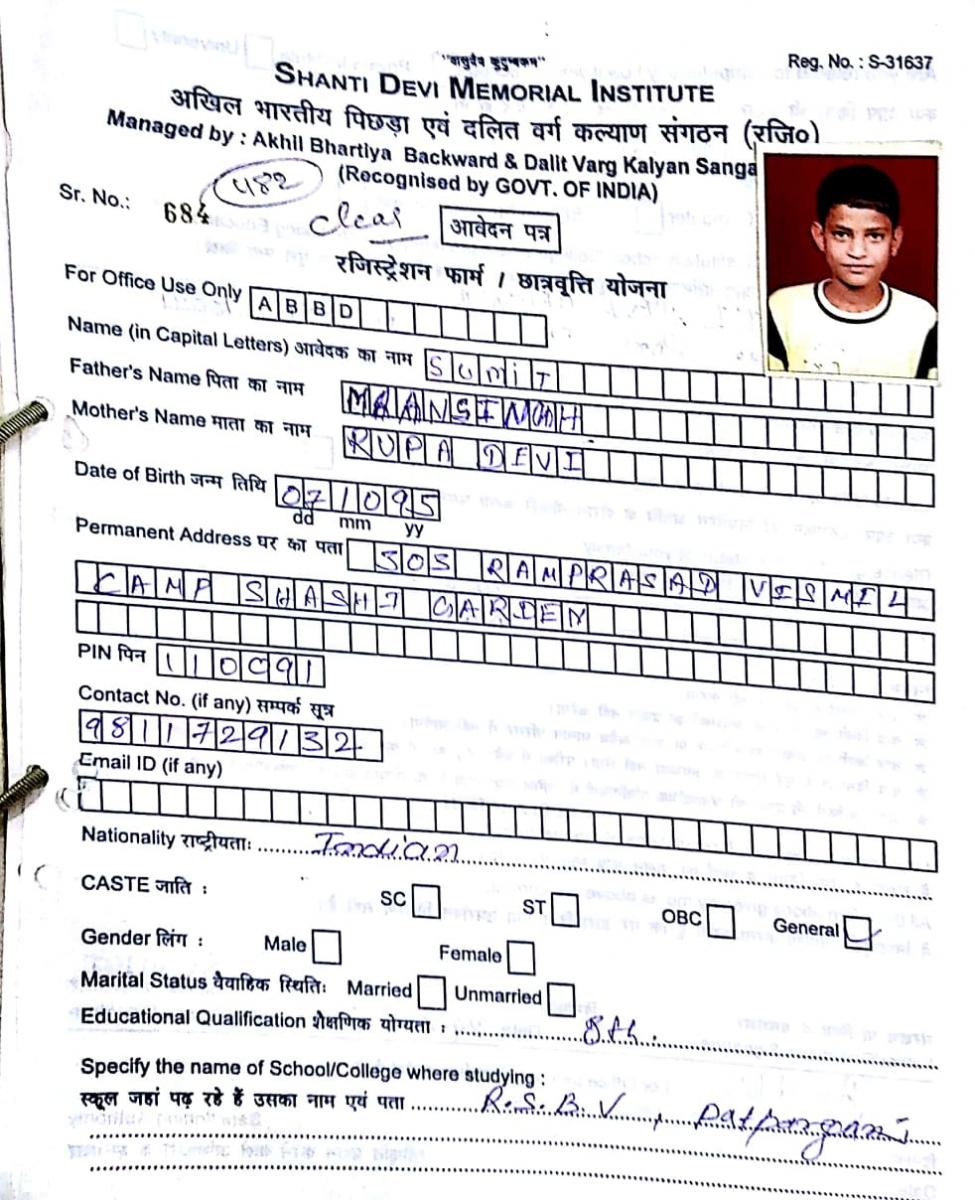 "वासुदेव कुटुम्बकम"
Reg. No. : S-31637
SHANTI DEVI MEMORIAL INSTITUTE
अखिल भारतीय पिछड़ा एवं दलित वर्ग कल्याण संगठन (रजि०)
Managed by : Akhil Bhartiya Backward & Dalit Varg Kalyan Sanga
(Recognised by GOVT. OF INDIA)
Sr. No.: 684 482 Clear
आवेदन पत्र
रजिस्ट्रेशन फार्म / छात्रवृत्ति योजना
For Office Use Only ABBD
Name (in Capital Letters) आवेदक का नाम SUMIT
Father's Name पिता का नाम MAANSINGH
Mother's Name माता का नाम RUPA DEVI
Date of Birth जन्म तिथि 071095
dd mm yy
Permanent Address घर का पता SOS RAMPRASAD VISMIL
CAMP SHASHI GARDEN
PIN पिन 110091
Contact No. (if any) सम्पर्क सूत्र
9811729132
Email ID (if any)
Nationality राष्ट्रीयताः Indian
CASTE जाति : SC ST OBC General
Gender लिंग : Male Female
Marital Status वैवाहिक स्थितिः Married Unmarried
Educational Qualification शैक्षणिक योग्यता : 8th.
Specify the name of School/College where studying :
स्कूल जहां पढ़ रहे हैं उसका नाम एवं पता R.S.B.V., Patparganj